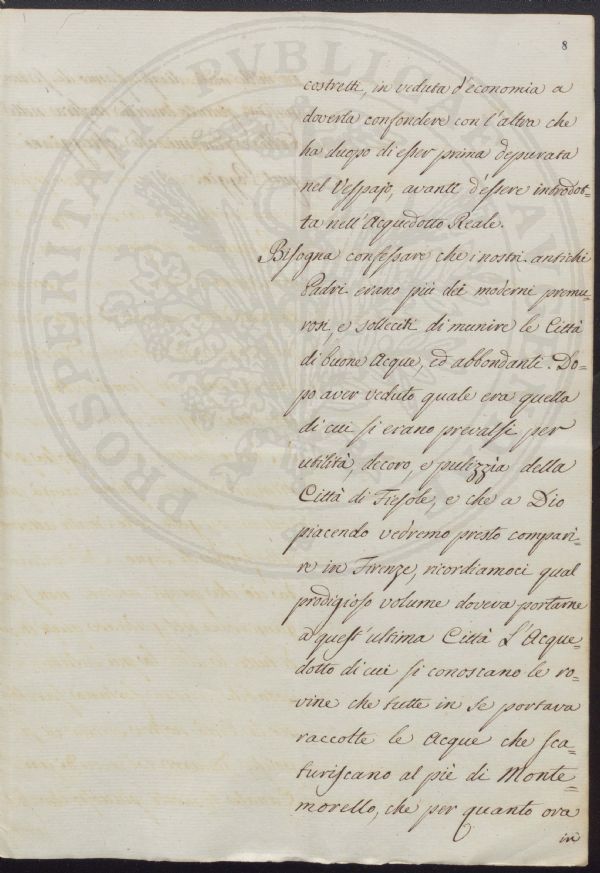 8
costretti, in veduta d'economia a
doverla confondere con l'altra che
ha duopo di esser prima depurata
nel Vespajo, avanti d'essere introdot=
ta nell'Acquedotto Reale.
Bisogna confessare che i nostri antichi
Padri erano più dei moderni premu=
rosi, e solleciti di munire le Città
di buone Acque, ed abbondanti. Do=
po aver veduto quale era quella
di cui si erano prevalsi per
utilità, decoro, e pulizzia della
Città di Fiesole, e che a Dio
piacendo vedremo presto compari=
re in Firenze, ricordiamoci qual
prodigioso volume doveva portarne
a quest'ultima Città L'Acque=
dotto di cui si conoscano le ro=
vine che tutte in se portava
raccolte le Acque che sca=
turiscano al piè di Monte=
morello, che per quanto ora
in
PROSPERITATI PVBLICAE